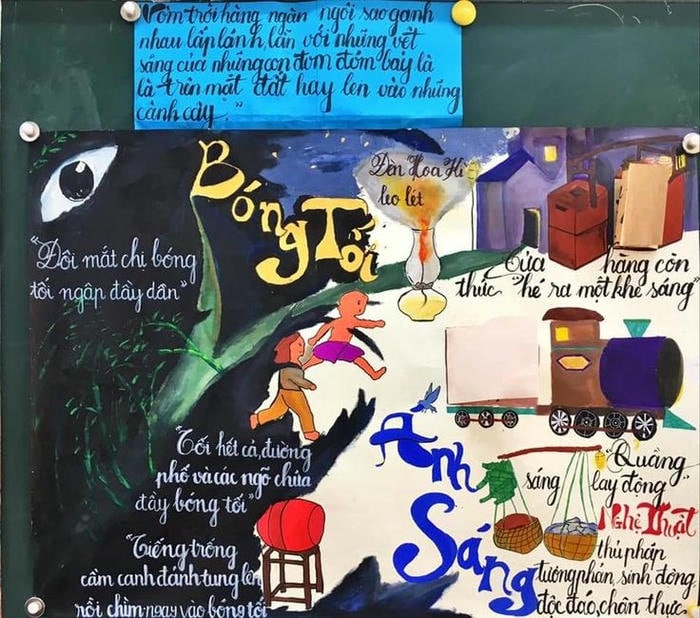 Vòm trời hàng ngàn ngôi sao ganh
nhau lấp lánh, lẫn với những vệt
sáng của những con đom đóm bay là
là trên mặt đất hay len vào những
cành cây."
Bóng Tối
Đèn Hoa Kì
leo lét
"Đôi mắt chị bóng
tối ngập đầy dần"
Cửa hàng còn
thức "hé ra một khe sáng"
"Tối hết cả, đường
phố và các ngõ chứa
đầy bóng tối"
Ánh
Sáng
"Quầng
sáng lay động"
Nghệ Thuật
thủ pháp
tương phản, sinh động
độc đáo, chân thực
"Tiếng trống
cầm canh đánh tung lên
rồi chìm ngay vào bóng tối